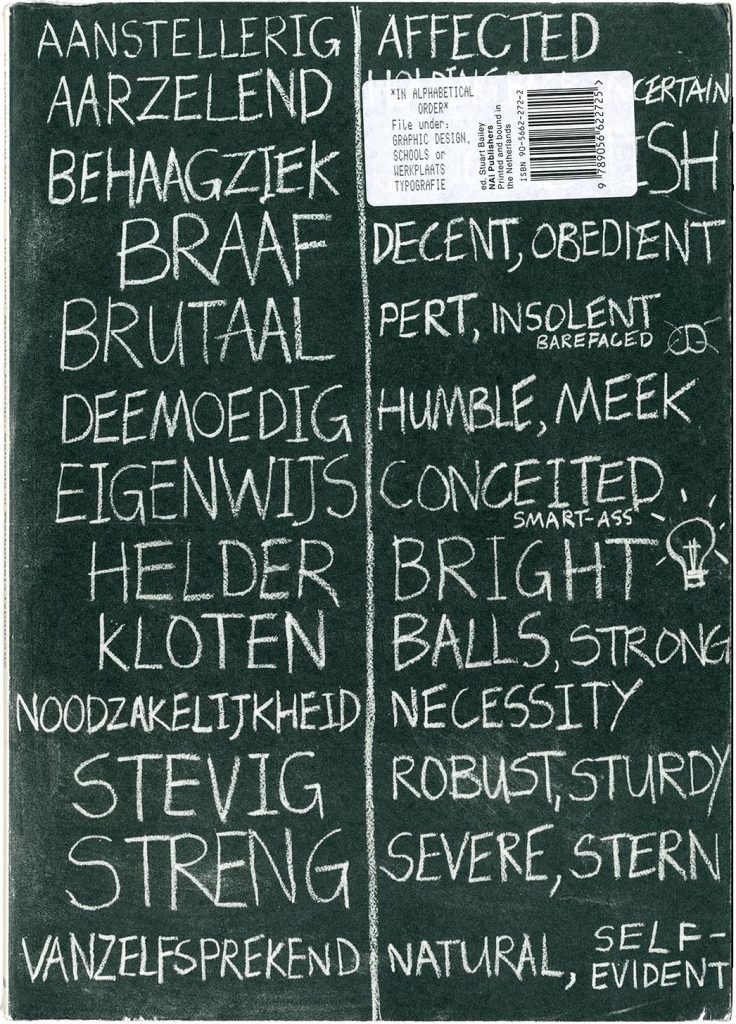 AANSTELLERIG AFFECTED
AARZELEND CERTAIN
BEHAAGZIEK
BRAAF DECENT, OBEDIENT
BRUTAAL PERT, INSOLENT
BAREFACED
DEEMOEDIG HUMBLE, MEEK
EIGENWIJS CONCEITED
SMART-ASS
HELDER BRIGHT
KLOTEN BALLS, STRONG
NOODZAKELIJKHEID NECESSITY
STEVIG ROBUST, STURDY
STRENG SEVERE, STERN
VANZELFSPREKEND NATURAL, SELF-
EVIDENT
*IN ALPHABETICAL
ORDER*
File under:
GRAPHIC DESIGN,
SCHOOLS or
WERKPLAATS
TYPOGRAFIE
ed. Stuart Bailey
NAi Publishers
Printed and bound in
the Netherlands
ISBN 90-5662-272-2
9 789056 622725 >